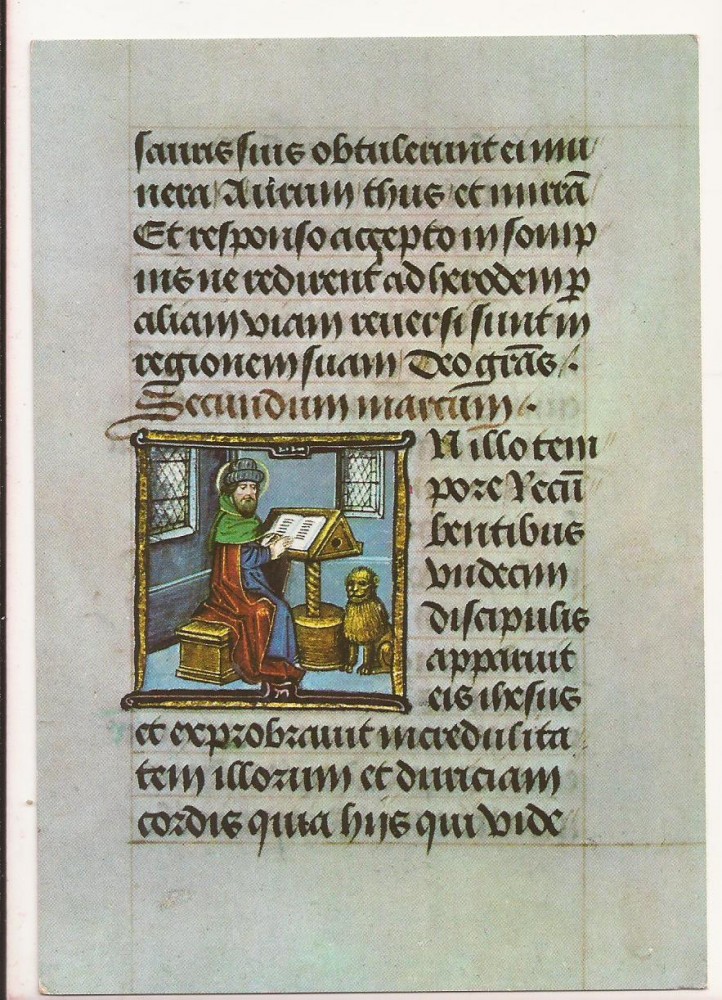 sauris suis obtulerunt ei mu
nera Aurum thus et mirrã
Et responso accepto in somp
nis ne redirent ad herodem ꝑ
aliam viam reuersi sunt in
regionem suam Deo grãs
Secundum marcum
N illo tem
pore Recũ
bentibus
vndecim
discipulis
apparuit
eis ihesus
et exprobrauit incredulita
tem illorum et duriciam
cordis quia hijs qui vide